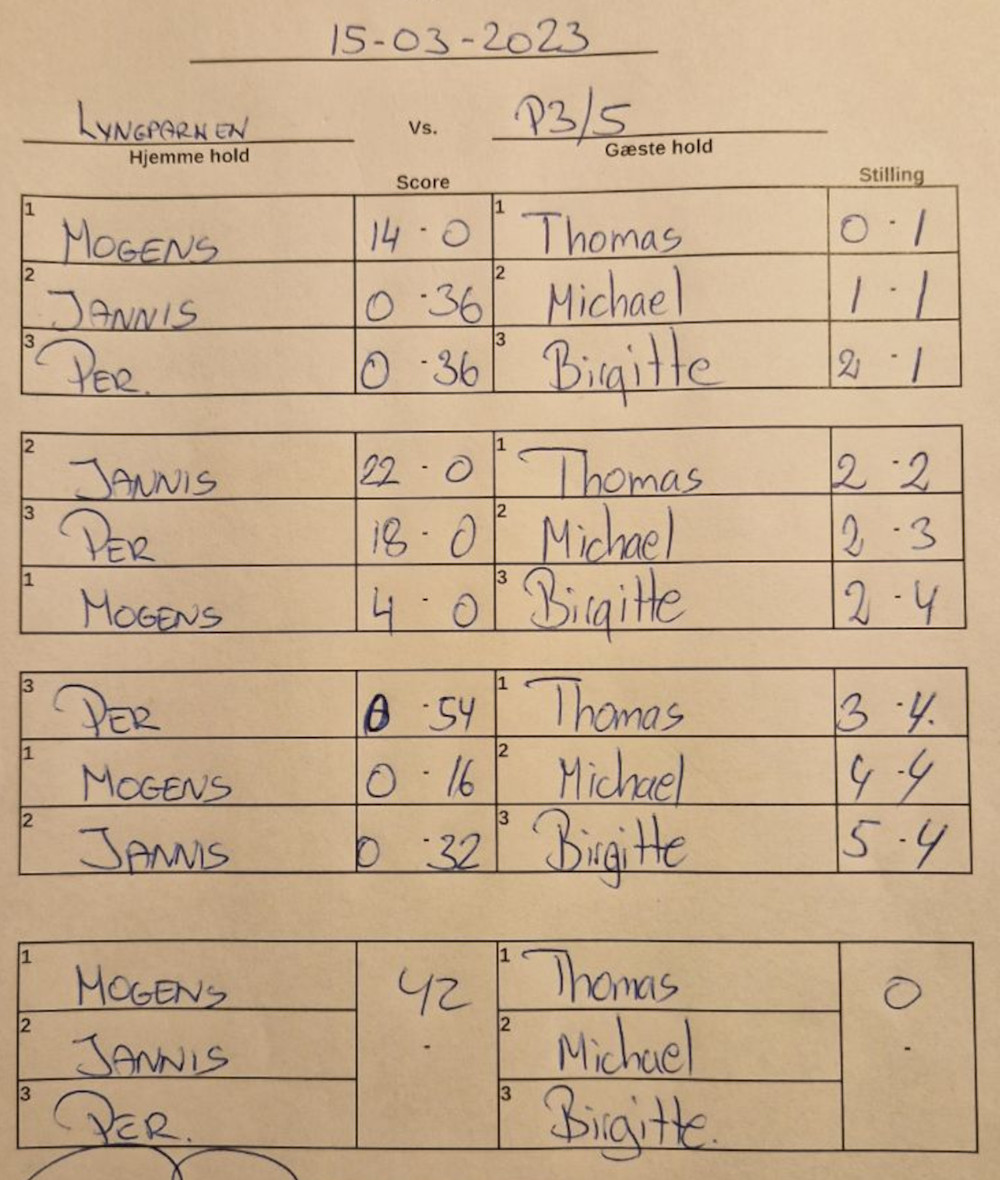 15-03-2023
LYNGPARKEN Vs. P3/5
Hjemme hold Gæste hold
Score Stilling
1 MOGENS 14 - 0 1 Thomas 0 - 1
2 JANNIS 0 - 36 2 Michael 1 - 1
3 PER. 0 - 36 3 Birgitte 2 - 1
2 JANNIS 22 - 0 1 Thomas 2 - 2
3 PER 18 - 0 2 Michael 2 - 3
1 MOGENS 4 - 0 3 Birgitte 2 - 4
3 PER 0 - 54 1 Thomas 3 - 4.
1 MOGENS 0 - 16 2 Michael 4 - 4
2 JANNIS 0 - 32 3 Birgitte 5 - 4
1 MOGENS 42 1 Thomas 0
2 JANNIS - 2 Michael -
3 PER. 3 Birgitte.